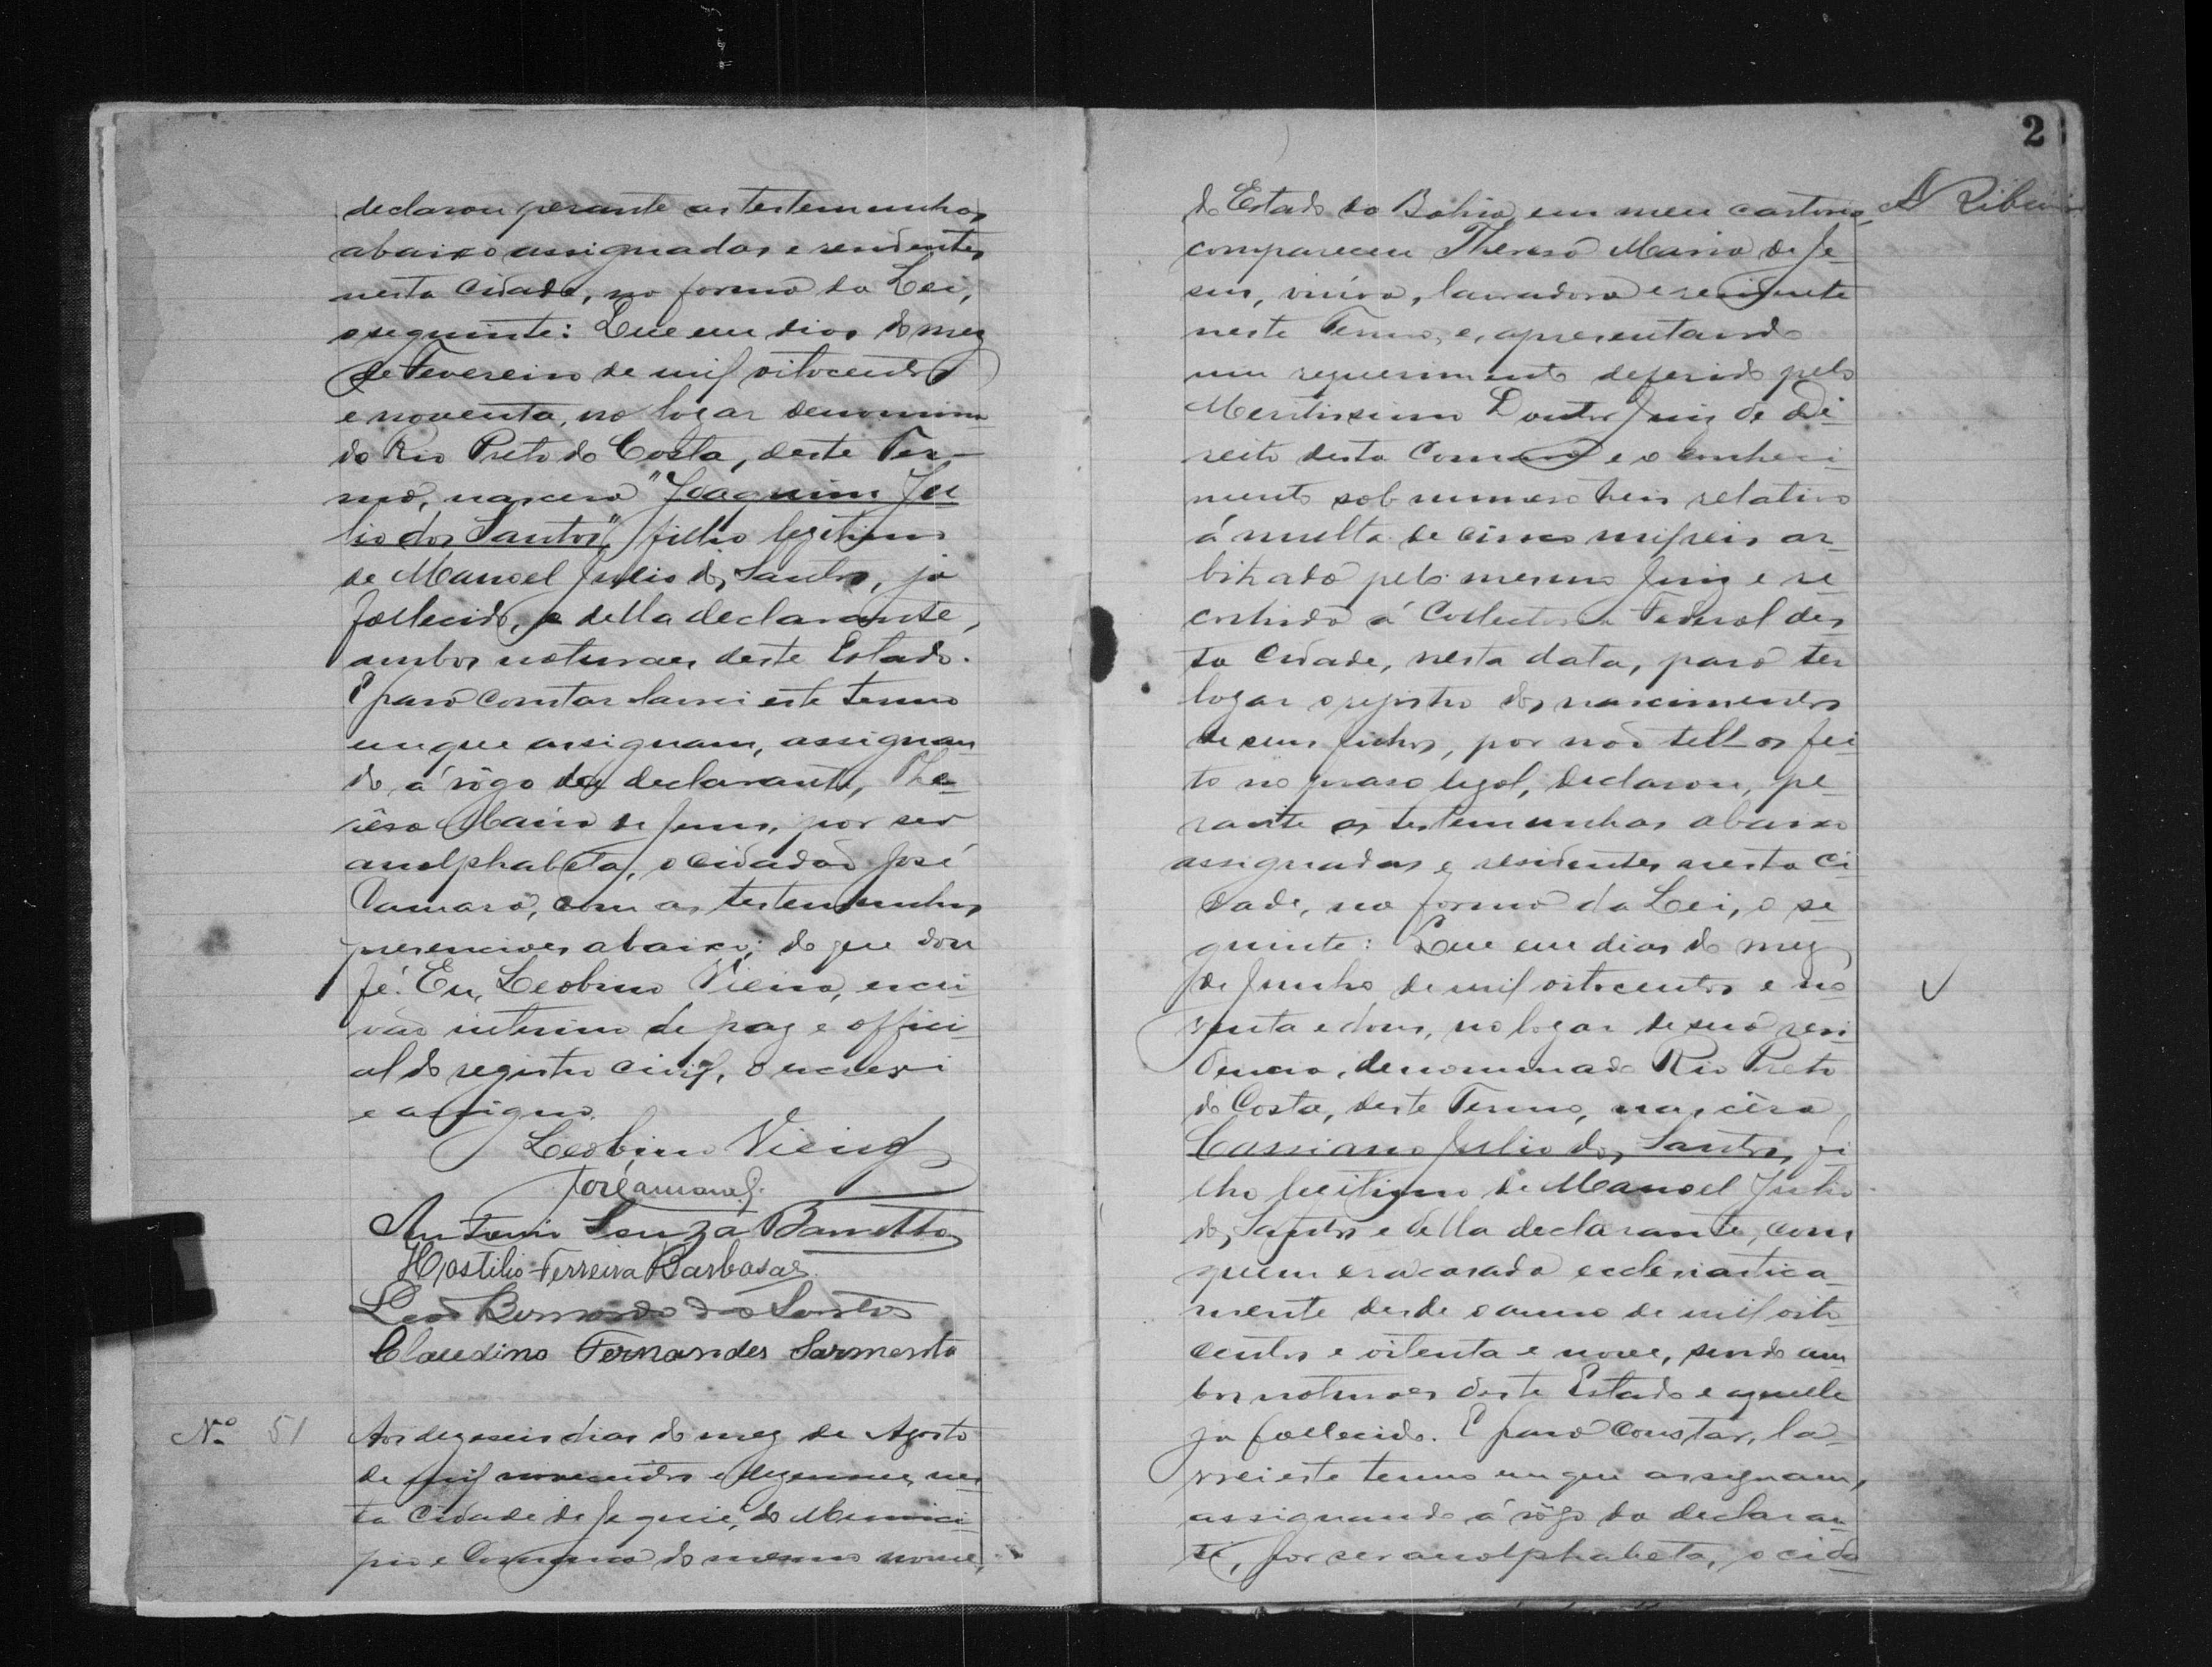 declarou perante as testemunhas
abaixo assignadas e residentes
nesta Cidade, na forma da Lei,
o seguinte: Que em dias do mez
de Fevereiro de mil oitocentos
e noventa, no logar denomina
do Rio Preto do Costa, deste Ter-
mo, nascera "Joaquim Ju
lio dos Santos", filho legitimo
de Manoel Julio dos Santos, já
fallecido, e della declarante,
ambos naturaes deste Estado.
E para constar lavrei este termo
em que assignam, assignan
do á rôgo da declarante, The-
rêsa Maria de Jesus, por ser
analphabeta, o cidadão José
Camara, com as testemunhas
presenciaes abaixo; do que dou
fé. Eu, Leobino Vieira, escri-
vão interino de paz e offici-
al do registro civil, o escrevi
e assigno.
Leobino Vieira
José Camara
Antonio Souza Barretto
Hostilio Ferreira Barbosa
Leão Bernardo dos Santos
Claudino Fernandes Sarmento
Nº 51
Aos dezaseis dias do mez de Agosto
de mil novecentos e dezenove, nes
ta Cidade de Jequié, do Munici-
pio e Comarca do mesmo nome,
2
do Estado da Bahia, em meu cartorio,
A Ribeiro
compareceu Theresa Maria de Je-
sus, viúva, lavradora e residente
neste Termo, e, apresentando
um requerimento deferido pelo
Meritissimo Doutor Juiz de Di-
reito desta Comarca e o conheci-
mento sob numero treis relativo
á multa de cinco mil reis ar-
bitrada pelo mesmo Juiz e re-
colhida á Collectoria Federal des
ta Cidade, nesta data, para ter
logar o registro dos nascimentos
de seus filhos, por não tel-os fei
to no praso legal, declarou, pe-
rante as testemunhas abaixo
assignadas e residentes nesta Ci
dade, na forma da Lei, o se-
guinte: Que em dias do mez
de Junho de mil oitocentos e no
venta e dous, no logar de sua resi
dencia, denominado Rio Preto
do Costa, deste Termo, nascêra
Cassiano Julio dos Santos, fi
lho legitimo de Manoel Julio
dos Santos e della declarante, com
quem era casada ecclesiastica-
mente desde o anno de mil oito
centos e oitenta e nove, sendo am
bos naturaes deste Estado e aquelle
ja fallecido. E para constar, la-
vrei este termo em que assignam,
assignando á rôgo da declaran-
te, por ser analphabeta, o cida-